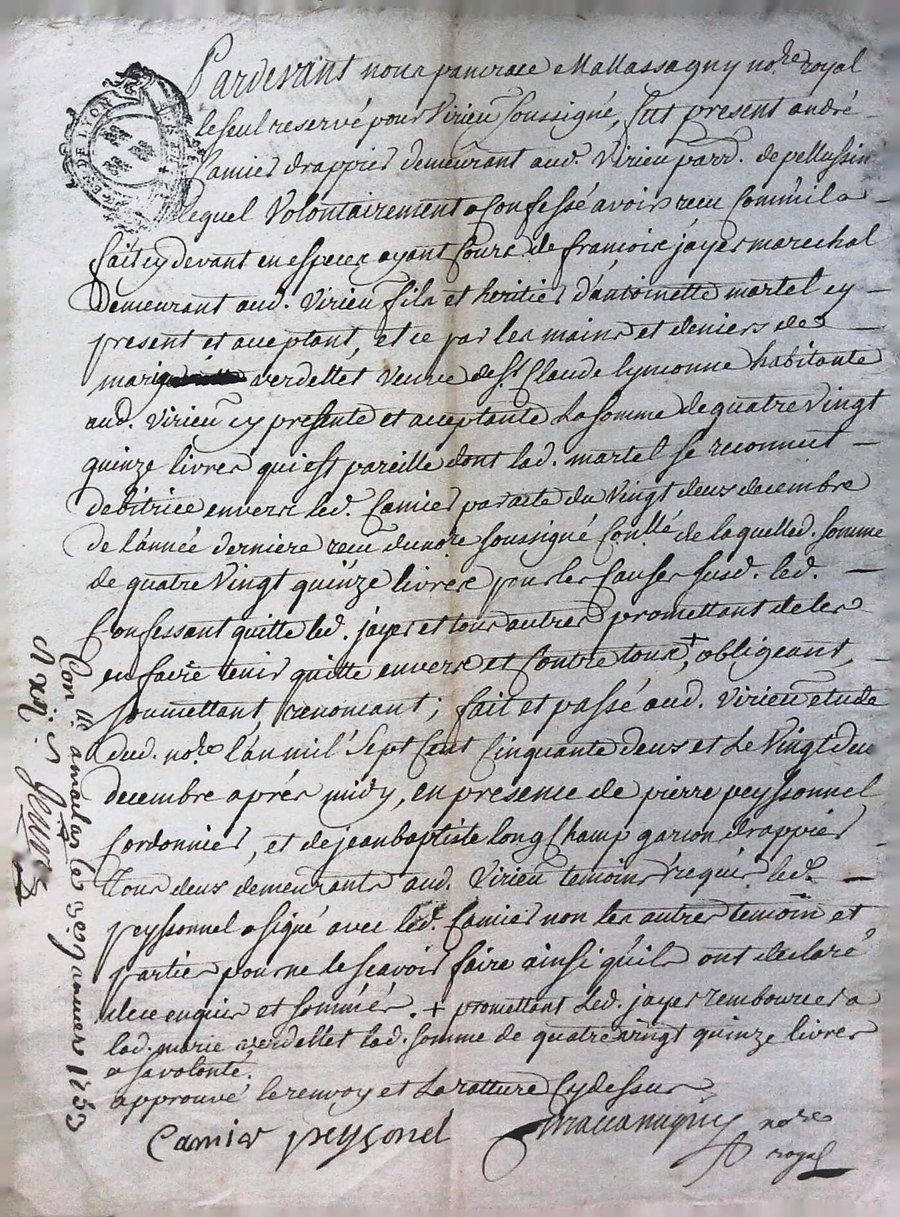 GEN DE LYON
Pardevant nous pancrace Mallassagny no.re royal
le seul reservé pour Virieu soussigné, fut present andré
Camier drappier demeurant aud. Virieu parr. de pellussin
lequel Volontairement a Confessé avoir recu Comm'il a
fait cy devant en especes ayant Cours de francois jayer marechal
Demeurant aud. Virieu fils et heritier d'antoinette martel cy
present et acceptant, et ce par les mains et deniers de
marie verdellet veuve de st. Claude Eymonne habitante
aud. Virieu cy presente et acceptante la somme de quatre Vingt
quinze livres qui est pareille dont lad. martel se reconnut
debitrice envers led. Camier par acte du Vingt deux decembre
de l'année derniere recu du no.re soussigné Con.llé de laquelled. somme
de quatre Vingt quinze livres pour les Causes susd. led.
Confessant quitte led. jayer et tous autres promettant de les
en faire tenir quitte envers et Contre tous +, obligeant,
soumettant, renoncant; fait et passé aud. Virieu etude
dud. no.re l'an mil Sept Cent Cinquante deux et le Vingt du
decembre aprés midy, en presence de pierre peyssonnel
Cordonnier, et de jean baptiste longchamp garcon drappier
Tous deux demeurants aud. Virieu temoins requis led.
peyssonnel a signé avec led. Camier non les autres temoin et
parties pour ne le scavoir faire ainsi quils ont declaré
de ce enquis et sommés. + promettant led. jayer rembourcer a
lad. marie verdellet lad. somme de quatre vingt quinze livres
a sa volonté.
approuvé le renvoy et la rature Cy dessus
Camier peysonel Mallassagny no.re
royal
Con.llé a malas le 3e janvier 1753